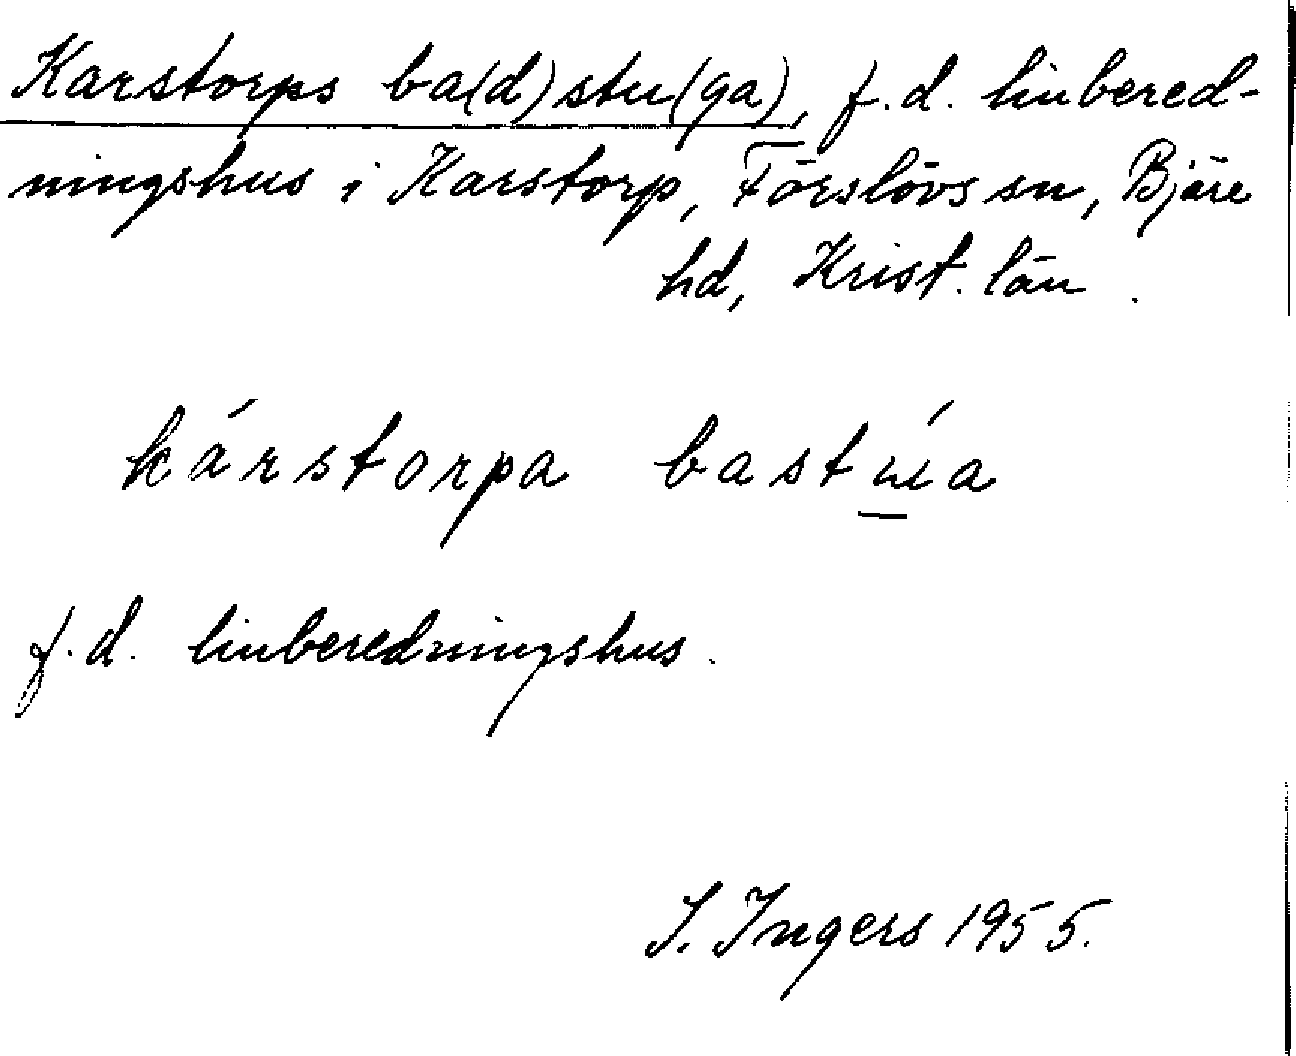 Karstorps ba(d)stu(ga), f.d. linbered-
ningshus i Karstorp, Förslövs sn, Bjäre
hd, Krist. län.
kárstorpa bastúa
f.d. linberedningshus.
I. Ingers 1955.